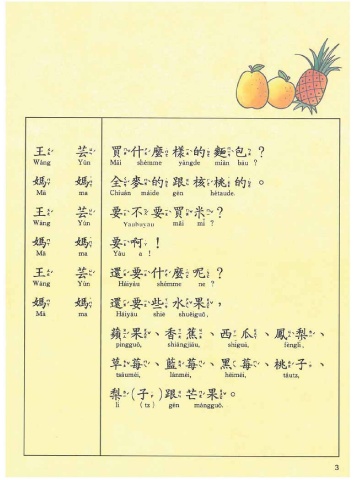 王芸 買什麼樣的麵包？
Wáng Yún Mǎi shémme yàngde miàn bāu ?
媽媽 全麥的跟核桃的。
Mā ma Chiuán màide gēn hétaude.
王芸 要不要買米？
Wáng Yún Yaubuyau mǎi mǐ ?
媽媽 要啊！
Mā ma Yàu a !
王芸 還要什麼呢？
Wáng Yún Háiyàu shémme ne ?
媽媽 還要些水果，
Mā ma Háiyàu shiē shuěiguǒ,
蘋果、香蕉、西瓜、鳳梨、
píngguǒ, shiāngjiāu, shīguā, fènglí,
草莓、藍莓、黑莓、桃子、
tsǎuméi, lánméi, hēiméi, táutz,
梨(子)跟芒果。
lí (tz) gēn mángguǒ.
3